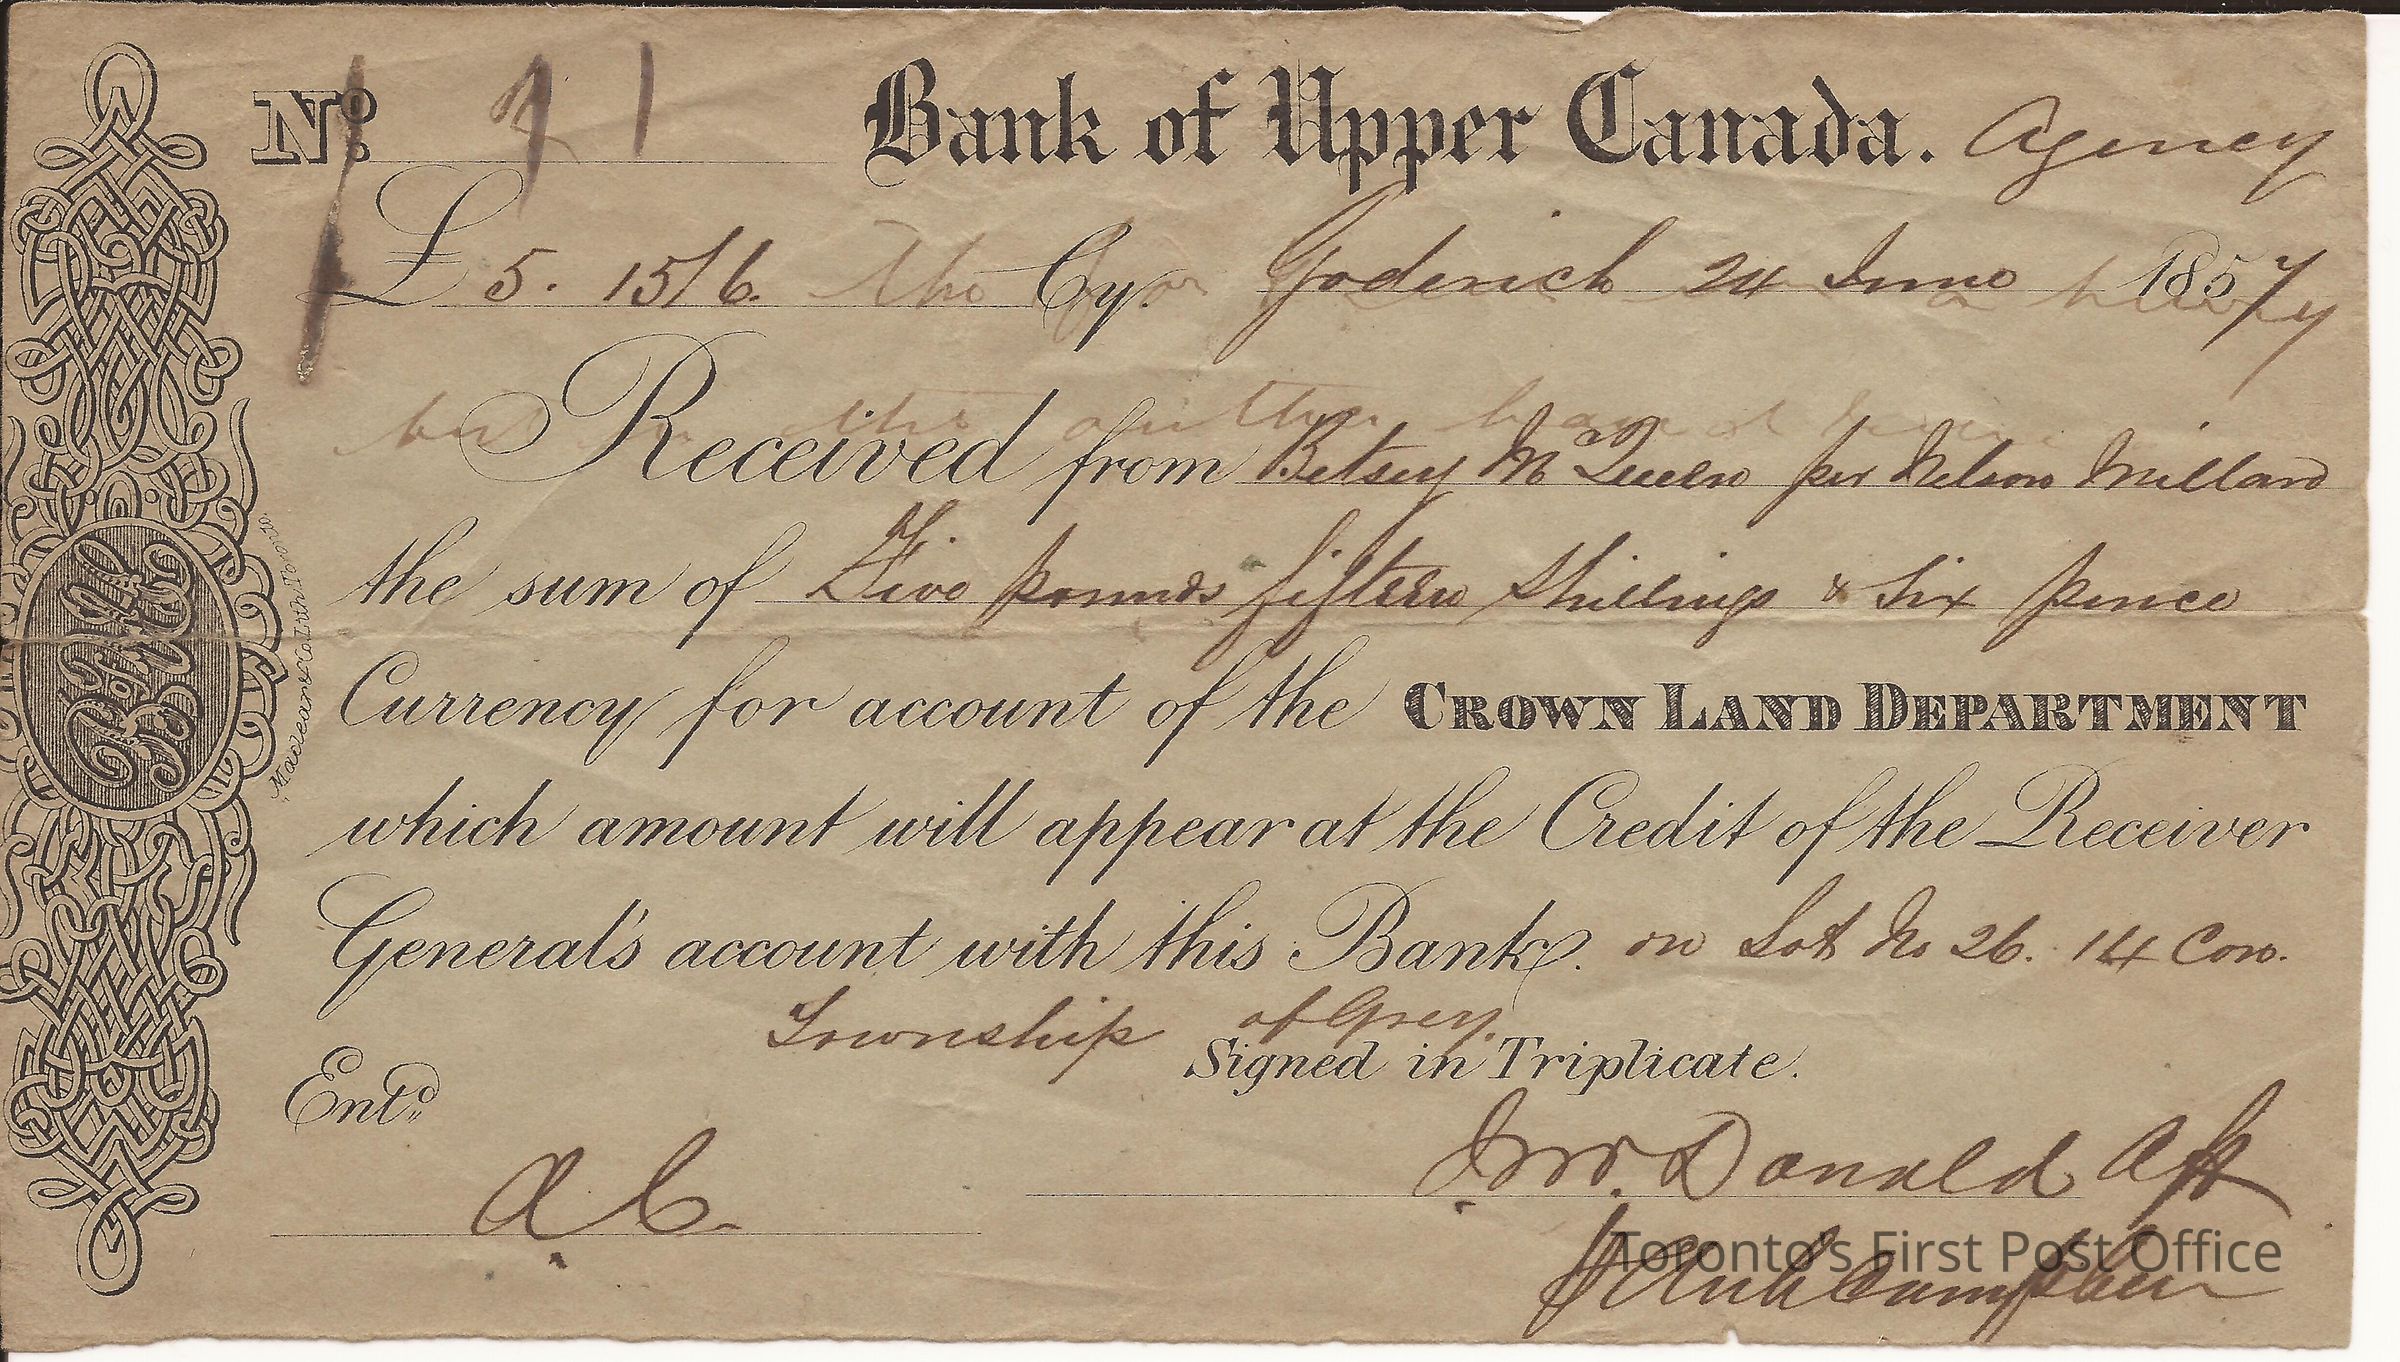 No. 1 Bank of Upper Canada. Agency
£ 5. 15/6. Cy. Goderich 24 June 1857
Received from Betsey McQueen per Nelson Millard
the sum of Five pounds fifteen Shillings & Six pence
Currency for account of the CROWN LAND DEPARTMENT
which amount will appear at the Credit of the Receiver
General's account with this Bank. on Lot No 26. 14 Con.
Township of Grey.
Signed in Triplicate.
Entd.
A C.
Jno. Donald Agt
Campbell
Toronto's First Post Office
Maclear & Co. Lith. Toronto.